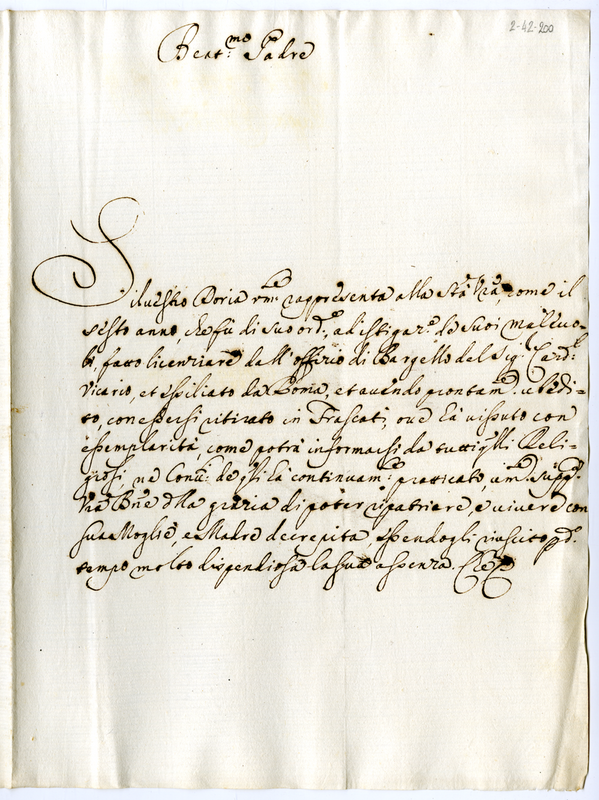 2-42-200
Beat.mo Padre
Siluestro Doria um.te rappresenta alla Stà Vrã, come il
sesto anno, che fù di suo ord.e, ad istigaz.e de suoi maleuo-
li, fatto licenziare dall'offizio di Bargello del Sig.r Card.l
Vicario, et essiliato da Roma, et auendo prontam.e ubedi-
to, con essersi ritirato in Frascati, oue hà uissuto con
essemplarità, come potrà informarsi da tutti gl'li Reli-
giosi, ne Conu.ti de q.li hà continuam.e pratticato, um.e supp.a
Vrã Bñe della grazia di poter ripatriare, e uiuere con
sua Moglie, e Madre decrepita, essendogli riuscito p.d.o
tempo molto dispendiosa la sua assenza. Che